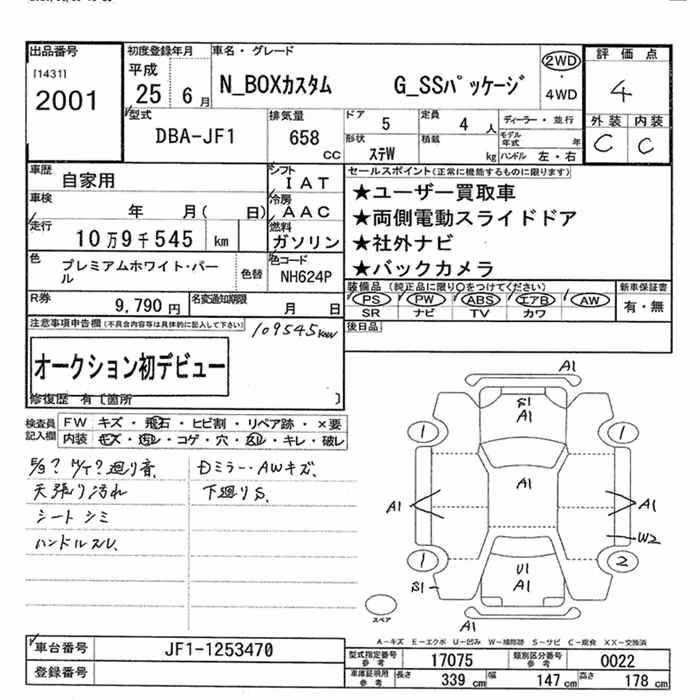 出品番号 初度登録年月 車名・グレード 2WD 評価点
[1431] 平成 ・ 4
2001 25 6月 N_BOXカスタム G_SSパッケージ 4WD
型式 排気量 ドア 5 定員 4 人 ディーラー・並行 外装 内装
DBA-JF1 658 cc 形状 ステW 積載 kg モデル年式 年 C C
ハンドル 左・右
車歴 自家用 シフト IAT セールスポイント(正常に機能するものに限ります)
車検 年 月( 日) 冷房 AAC ★ユーザー買取車
走行 10万9千545 km 燃料 ガソリン ★両側電動スライドドア
★社外ナビ
色 プレミアムホワイト・パール 色替 色コード NH624P ★バックカメラ
R券 9,790円 名変通知期限 月 日 装備品(純正品に限り○をつけてください) 新車保証書
PS PW ABS エアB AW 有・無
SR ナビ TV カワ
注意事項申告欄(不具合内容等は具体的に記入して下さい) 109545km 後日品
オークション初デビュー
修復歴 有〔箇所 〕
検査員記入欄 FW キズ・飛石・ヒビ割・リペア跡・×要
内装 キズ・汚レ・コゲ・穴・スレ・キレ・破レ
廻り音、 Dミラー・AWキズ、
天張り汚れ 下廻りS、
シートシミ
ハンドルスレ、
A1
S1
A1
1 1
A1
A1 A1
W2
1 2
S1 U1
A1
A1
スペア
A-キズ E-エクボ U-凹み W-補修跡 S-サビ C-腐食 XX-交換済
車台番号 JF1-1253470 型式指定番号 参考 17075 類別区分番号 参考 0022
登録番号 車庫証明用 参考 長さ 339 cm 幅 147 cm 高さ 178 cm